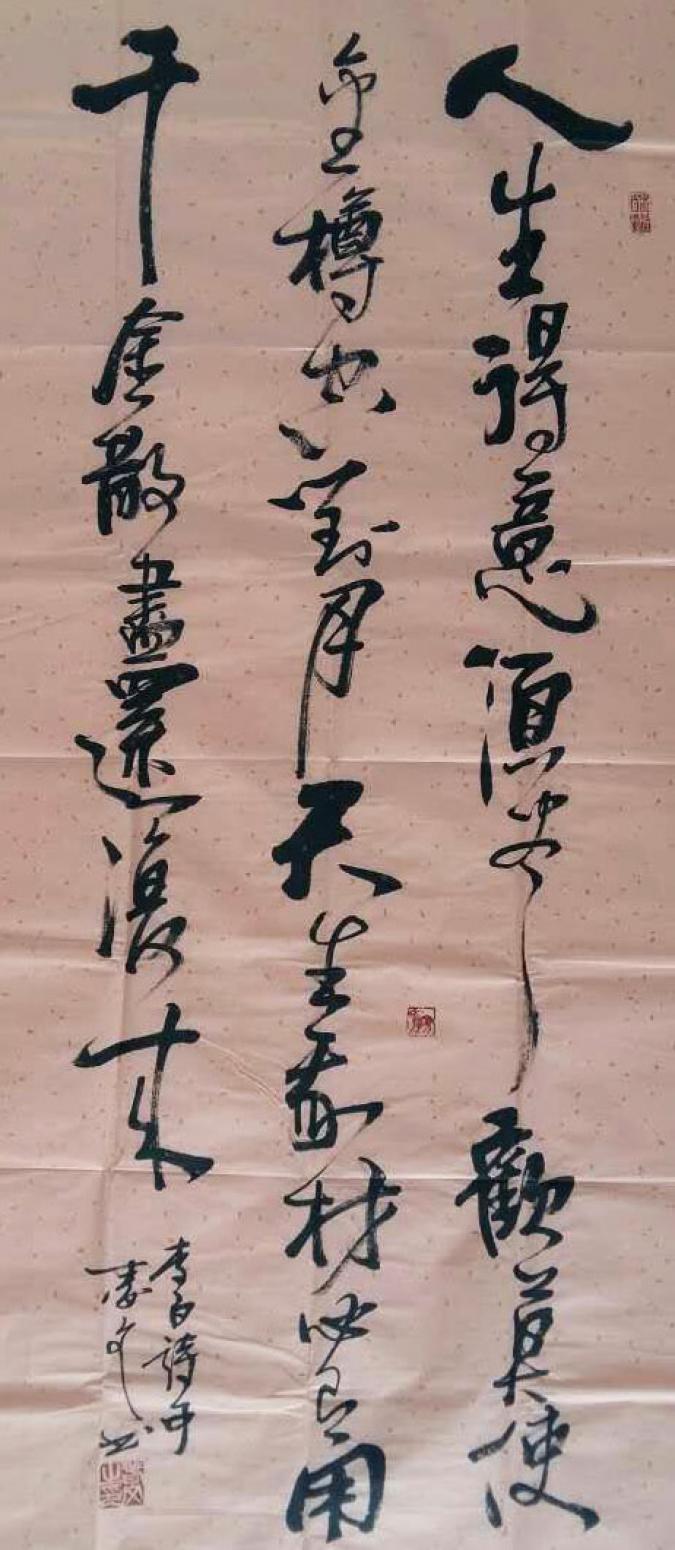 人生得意須尽歡莫使
金樽空對月天生我材必有用
千金散盡還復來
李白詩句
文书